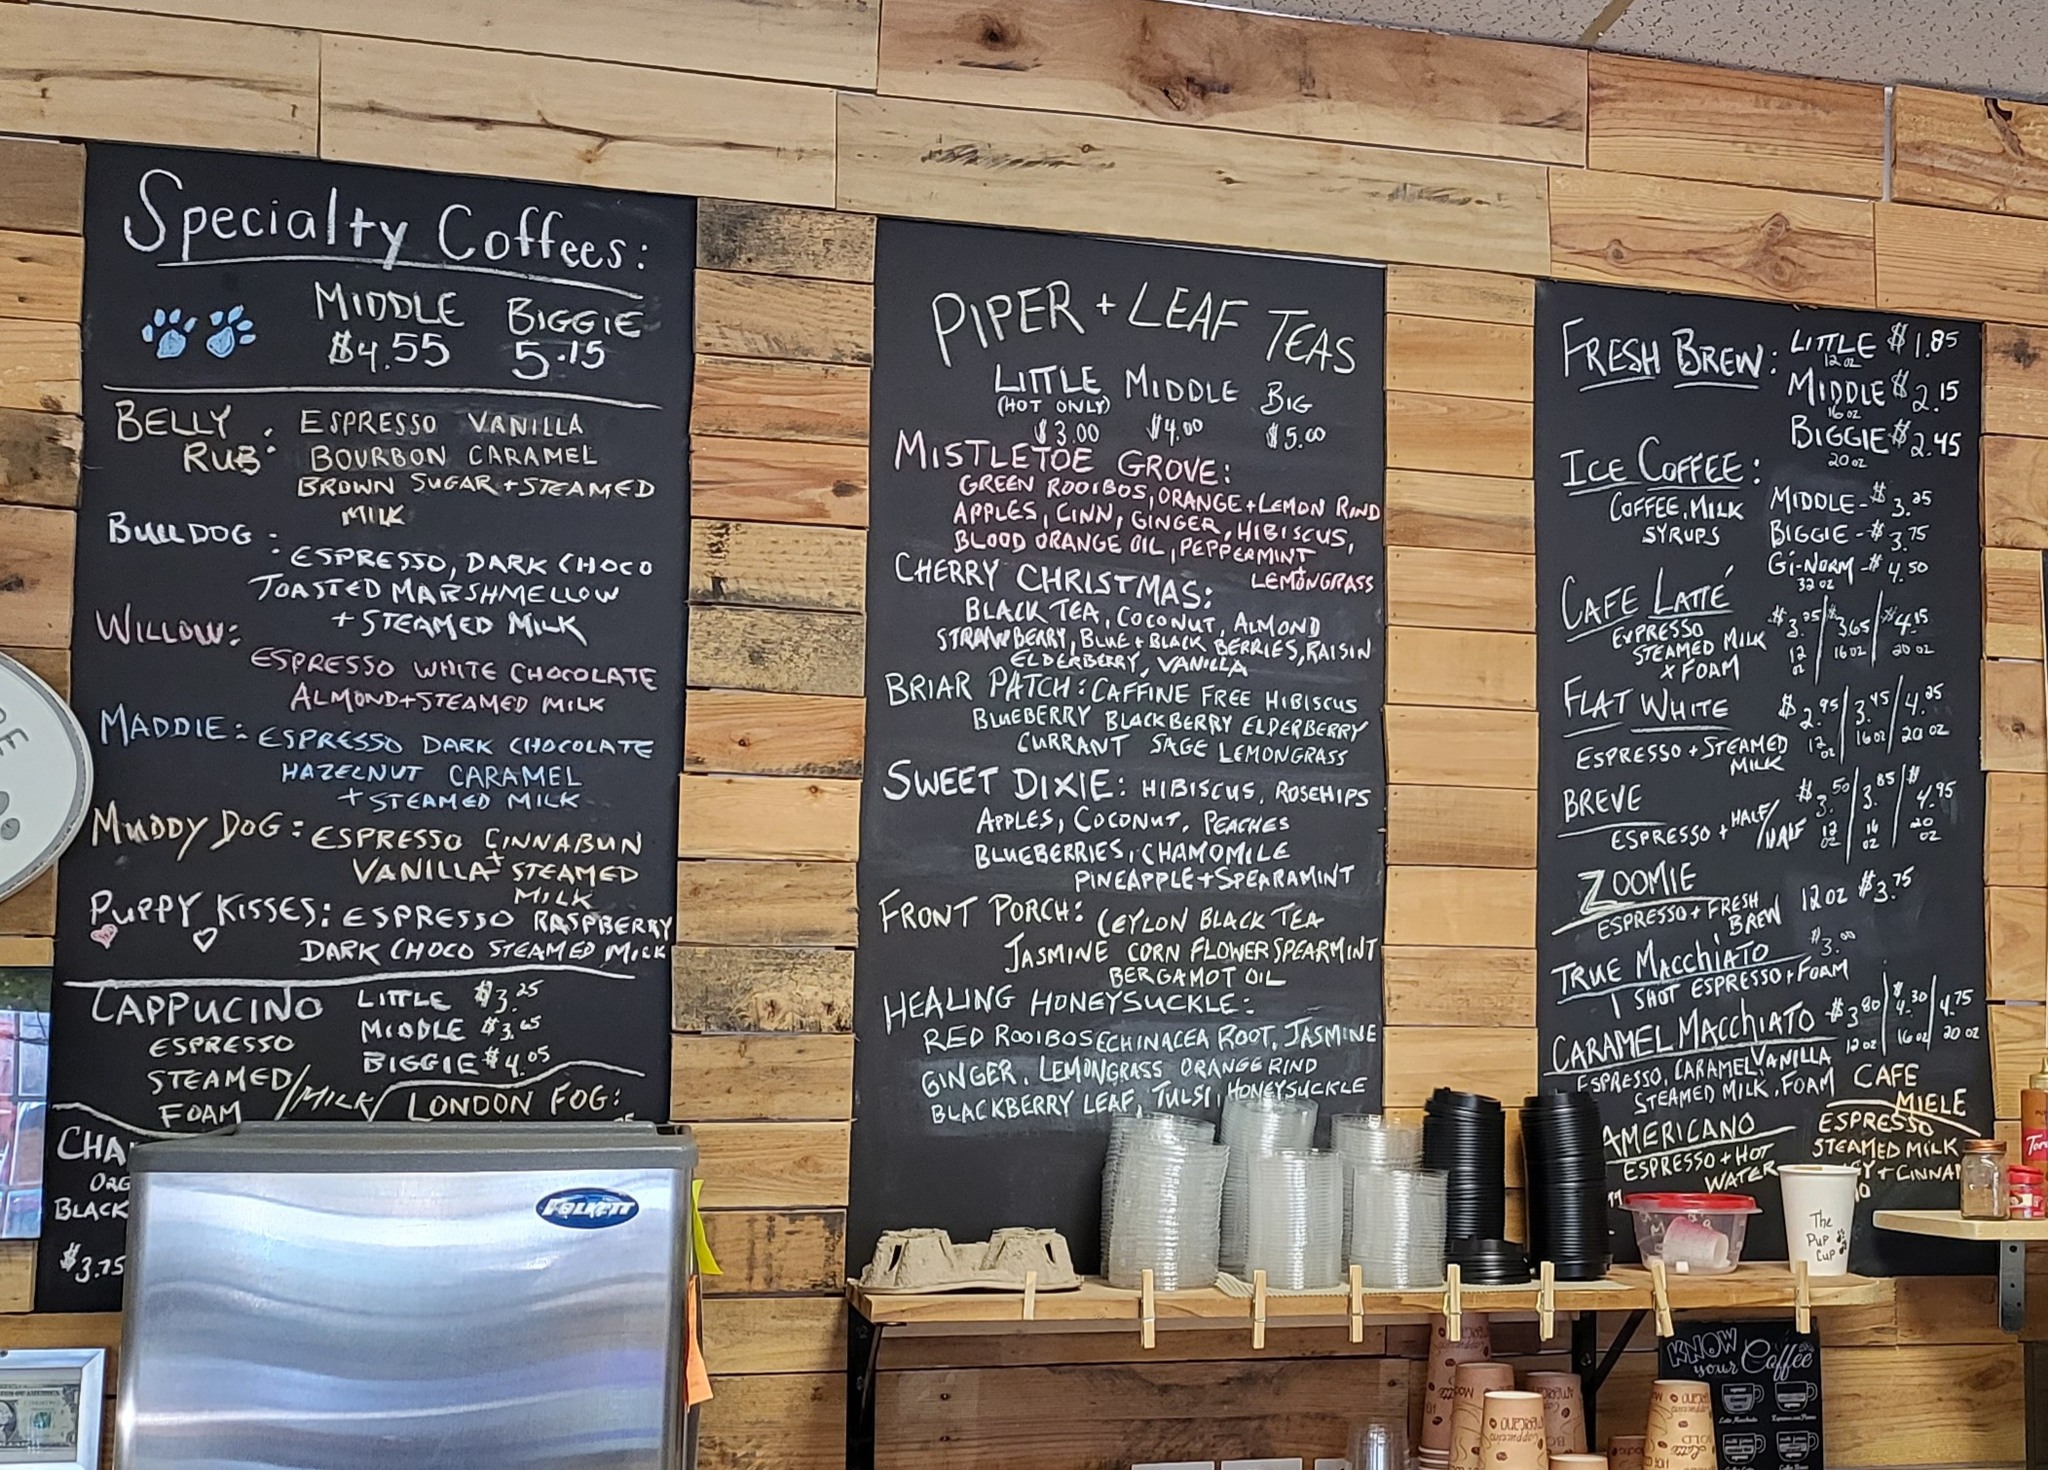 Specialty Coffees:
MIDDLE BIGGIE
$4.55 5.15
BELLY RUB: ESPRESSO VANILLA
BOURBON CARAMEL
BROWN SUGAR + STEAMED
MILK
BULLDOG:
ESPRESSO, DARK CHOCO
TOASTED MARSHMELLOW
+ STEAMED MILK
WILLOW:
ESPRESSO WHITE CHOCOLATE
ALMOND + STEAMED MILK
MADDIE: ESPRESSO DARK CHOCOLATE
HAZELNUT CARAMEL
+ STEAMED MILK
MUDDY DOG: ESPRESSO CINNABUN
VANILLA + STEAMED
MILK
PUPPY KISSES: ESPRESSO RASPBERRY
DARK CHOCO STEAMED MILK
CAPPUCINO LITTLE $3.25
ESPRESSO MIDDLE $3.65
STEAMED/MILK BIGGIE $4.05
FOAM
LONDON FOG:
CHA
ORG
BLACK
$3.75
FOLLETT
PIPER + LEAF TEAS
LITTLE MIDDLE BIG
(HOT ONLY)
$3.00 $4.00 $5.00
MISTLETOE GROVE:
GREEN ROOIBOS, ORANGE + LEMON RIND
APPLES, CINN, GINGER, HIBISCUS,
BLOOD ORANGE OIL, PEPPERMINT +
LEMONGRASS
CHERRY CHRISTMAS:
BLACK TEA, COCONUT, ALMOND
STRAWBERRY, BLUE + BLACK BERRIES, RAISIN
ELDERBERRY, VANILLA
BRIAR PATCH: CAFFINE FREE HIBISCUS
BLUEBERRY BLACKBERRY ELDERBERRY
CURRANT SAGE LEMONGRASS
SWEET DIXIE: HIBISCUS, ROSEHIPS
APPLES, COCONUT, PEACHES
BLUEBERRIES, CHAMOMILE
PINEAPPLE + SPEARAMINT
FRONT PORCH: CEYLON BLACK TEA
JASMINE CORN FLOWER SPEARMINT
BERGAMOT OIL
HEALING HONEYSUCKLE:
RED ROOIBOS ECHINACEA ROOT, JASMINE
GINGER, LEMONGRASS ORANGE RIND
BLACKBERRY LEAF, TULSI, HONEYSUCKLE
FRESH BREW: LITTLE $1.85
12 oz
MIDDLE $2.15
16 oz
BIGGIE $2.45
20 oz
ICE COFFEE:
COFFEE, MILK
SYRUPS
MIDDLE - $3.25
BIGGIE - $3.75
Gi-NORM - $4.50
32 oz
CAFE LATTÉ
ESPRESSO
STEAMED MILK
x FOAM
$3.25 / $3.65 / $4.15
12 oz 16 oz 20 oz
FLAT WHITE $2.95 / 3.45 / 4.25
12 oz 16 oz 20 oz
ESPRESSO + STEAMED
MILK
BREVE $3.50 / 3.85 / $4.95
ESPRESSO + HALF/HALF 12 oz 16 oz 20 oz
ZOOMIE
ESPRESSO + FRESH BREW 12 oz $3.75
TRUE MACCHiATO $3.00
1 SHOT ESPRESSO + FOAM
CARAMEL MACCHiATO $3.80 / $4.30 / 4.75
12 oz 16 oz 20 oz
ESPRESSO, CARAMEL VANILLA
STEAMED MILK, FOAM
AMERICANO
ESPRESSO + HOT
WATER
CAFE
MIELE
ESPRESSO
STEAMED MILK
+ CINNA
The
Pup
Cup
KNOW
your Coffee